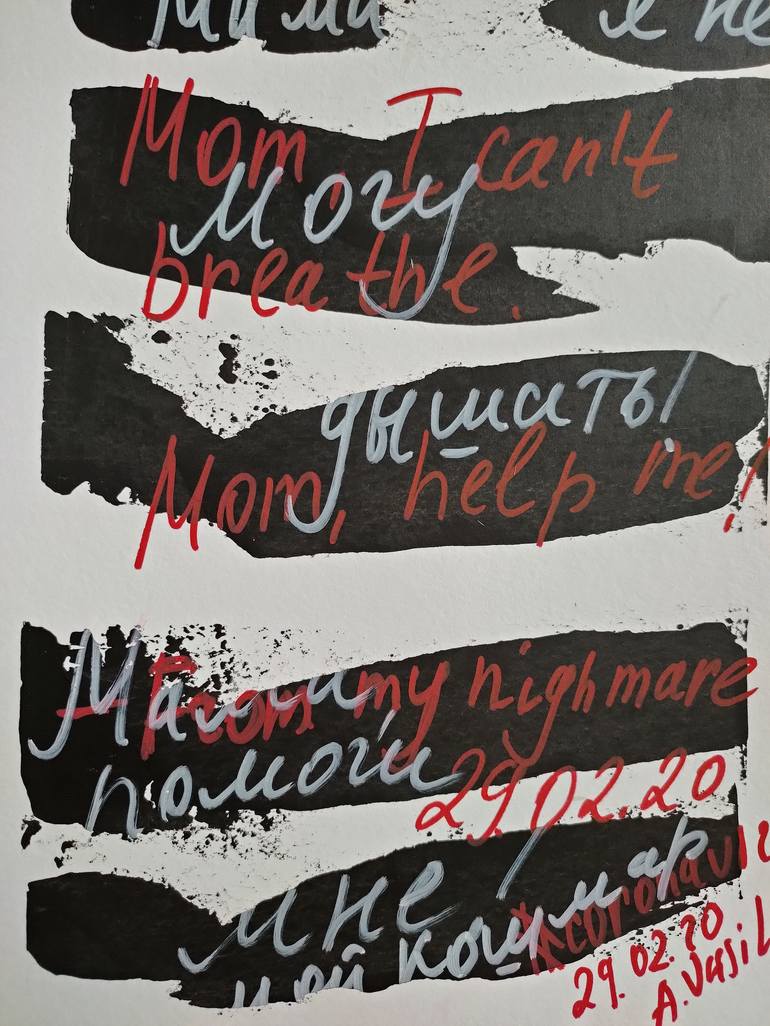 Мама я не
Mom, I can't
могу
breathe.
дышать!
Mom, help me!
Мама
- From my nighmare
помоги
29.02.20
мне!
мой кошмар
#coronavir
29.02.20
A.Vasil